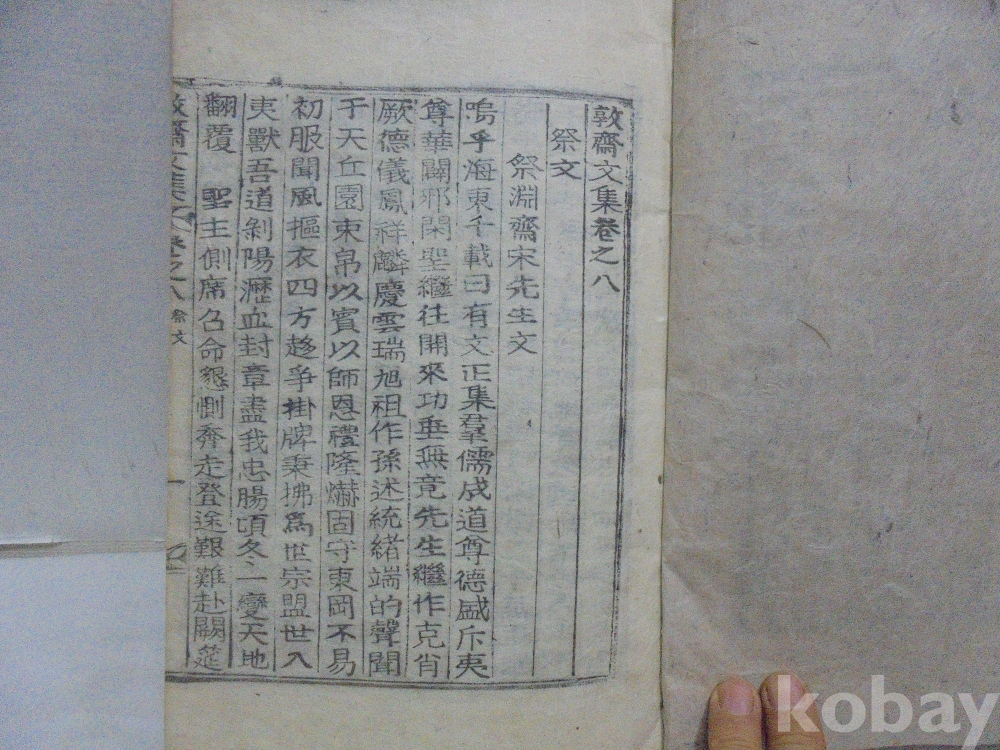 敦齋文集卷之八
祭文
祭淵齋宋先生文
嗚乎海東千載曰有文正集羣儒成道尊德盛斥夷
尊華闢邪閑聖繼往開來功垂無竟先生繼作克肖
厥德儀鳳祥麟慶雲瑞旭祖作孫述統緖端的聲聞
于天丘園束帛以賓以師恩禮隆爀固守東岡不易
初服聞風摳衣四方趍爭掛牌秉拂爲世宗盟世入
夷獸吾道剝陽瀝血封章盡我忠腸頃冬一變天地
翻覆 聖主側席召命懇惻奔走登途艱難赴闕筵
敦齋文集 卷之八 祭文 一
kobay